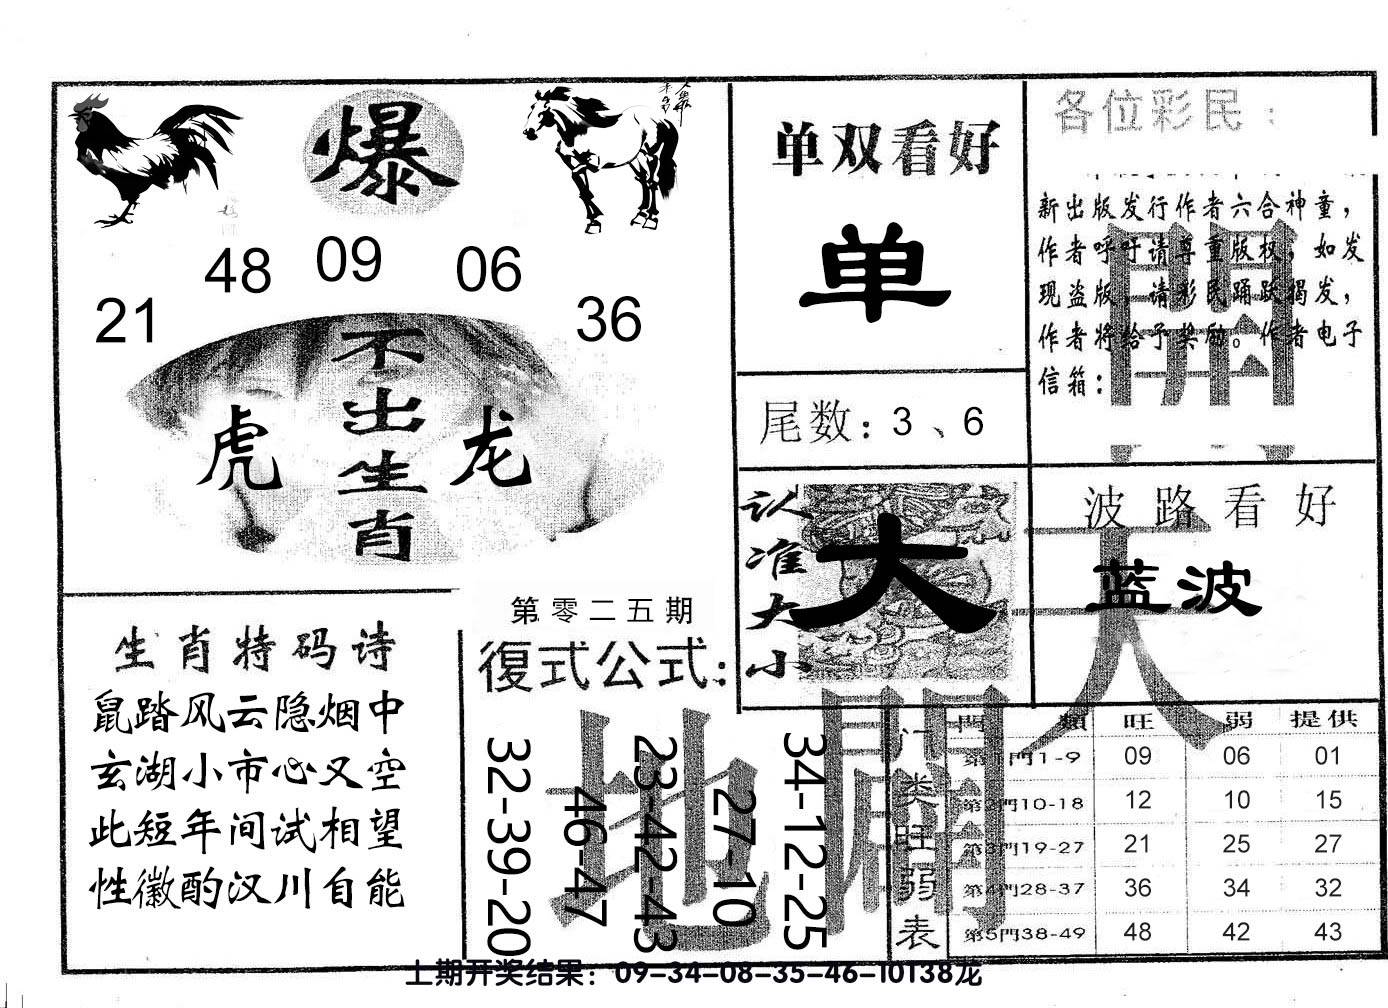 爆
48 09 06
21 36
不出生肖
虎 龙
单双看好
单
尾数：3、6
各位彩民：
新出版发行作者六合神童，
作者呼吁请尊重版权，如发
现盗版，请彩民踊跃揭发，
作者将给予奖励。作者电子
信箱：
認准大小
大
波路看好
蓝波
生肖特码诗
鼠踏风云隐烟中
玄湖小市心又空
此短年间试相望
性徽酌汉川自能
第零二五期
復式公式：
32-39-20
46-47
23-42-43
27-10
34-12-25
天
開
地
門类旺弱表
門類 旺 弱 提供
第1門1-9 09 06 01
第2門10-18 12 10 15
第3門19-27 21 25 27
第4門28-37 36 34 32
第5門38-49 48 42 43
上期开奖结果：09-34-08-35-46-10T38龙